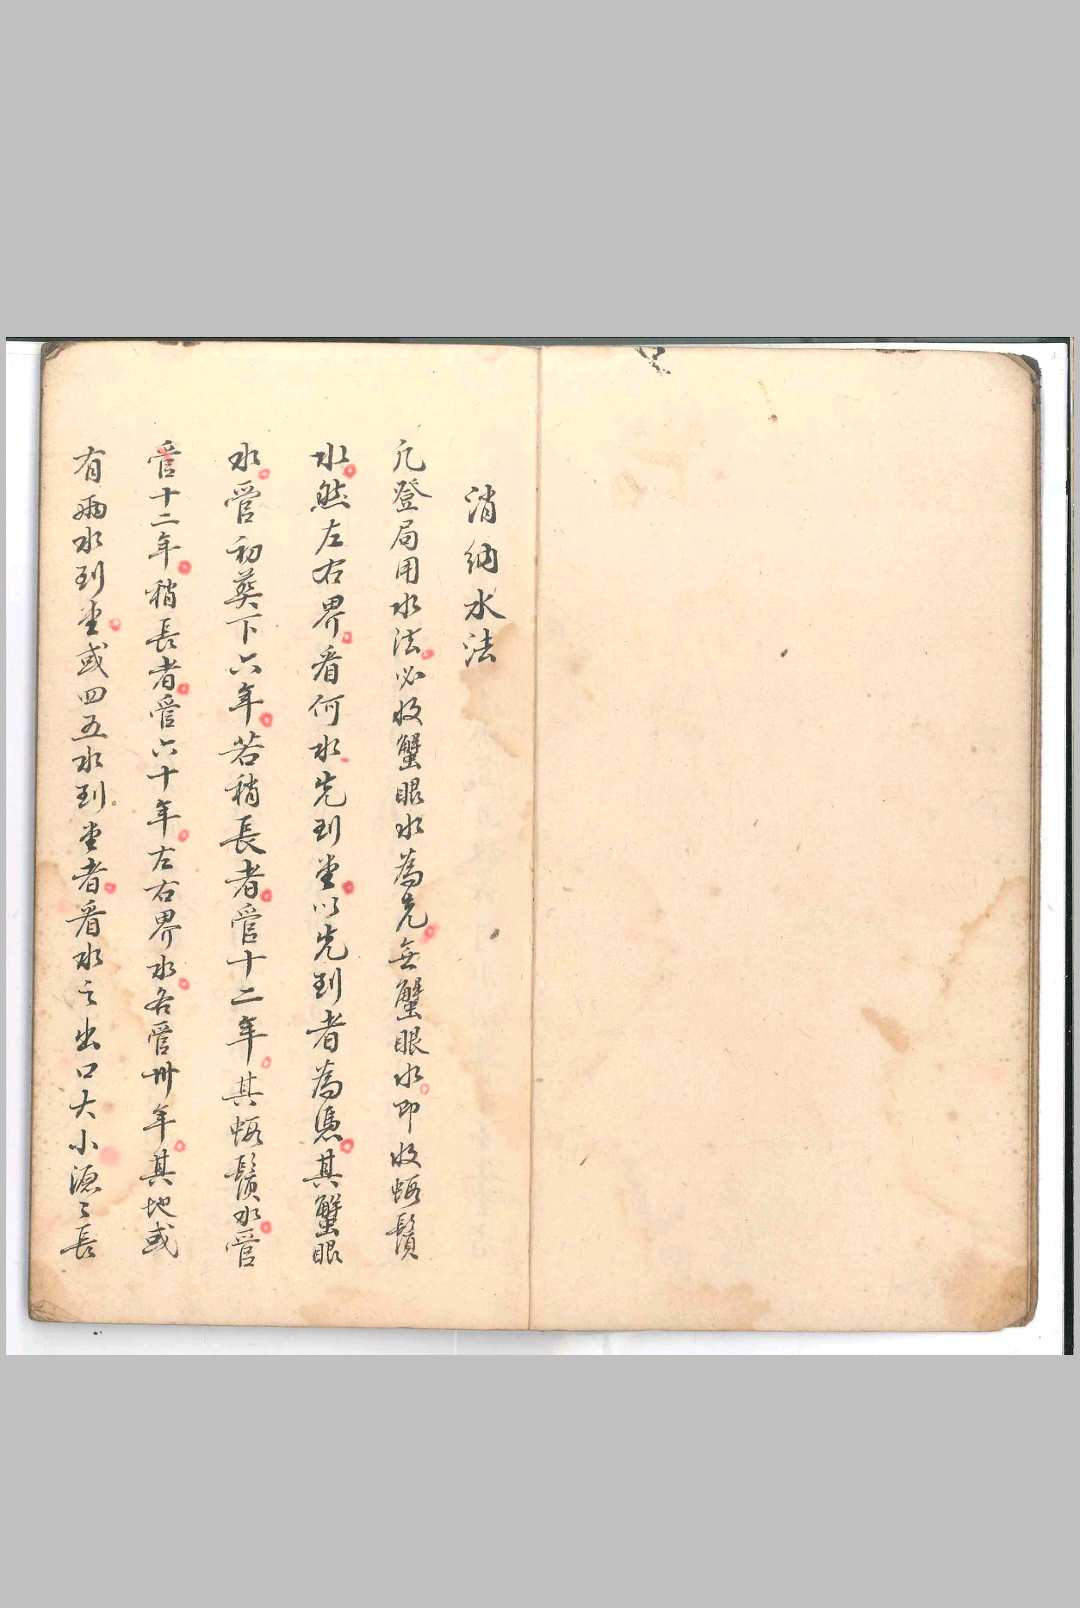 消納水法
凡登局用水法必收蟹眼水為先無蟹眼水即收蝦鬚
水然左右界看何水先到堂以先到者為憑其蟹眼
水管初葬下六年若稍長者管十二年其蝦鬚水管
管十二年稍長者管六十年左右界水各管卅年其地或
有兩水到堂或四五水到堂者看水之出口大小源〻長